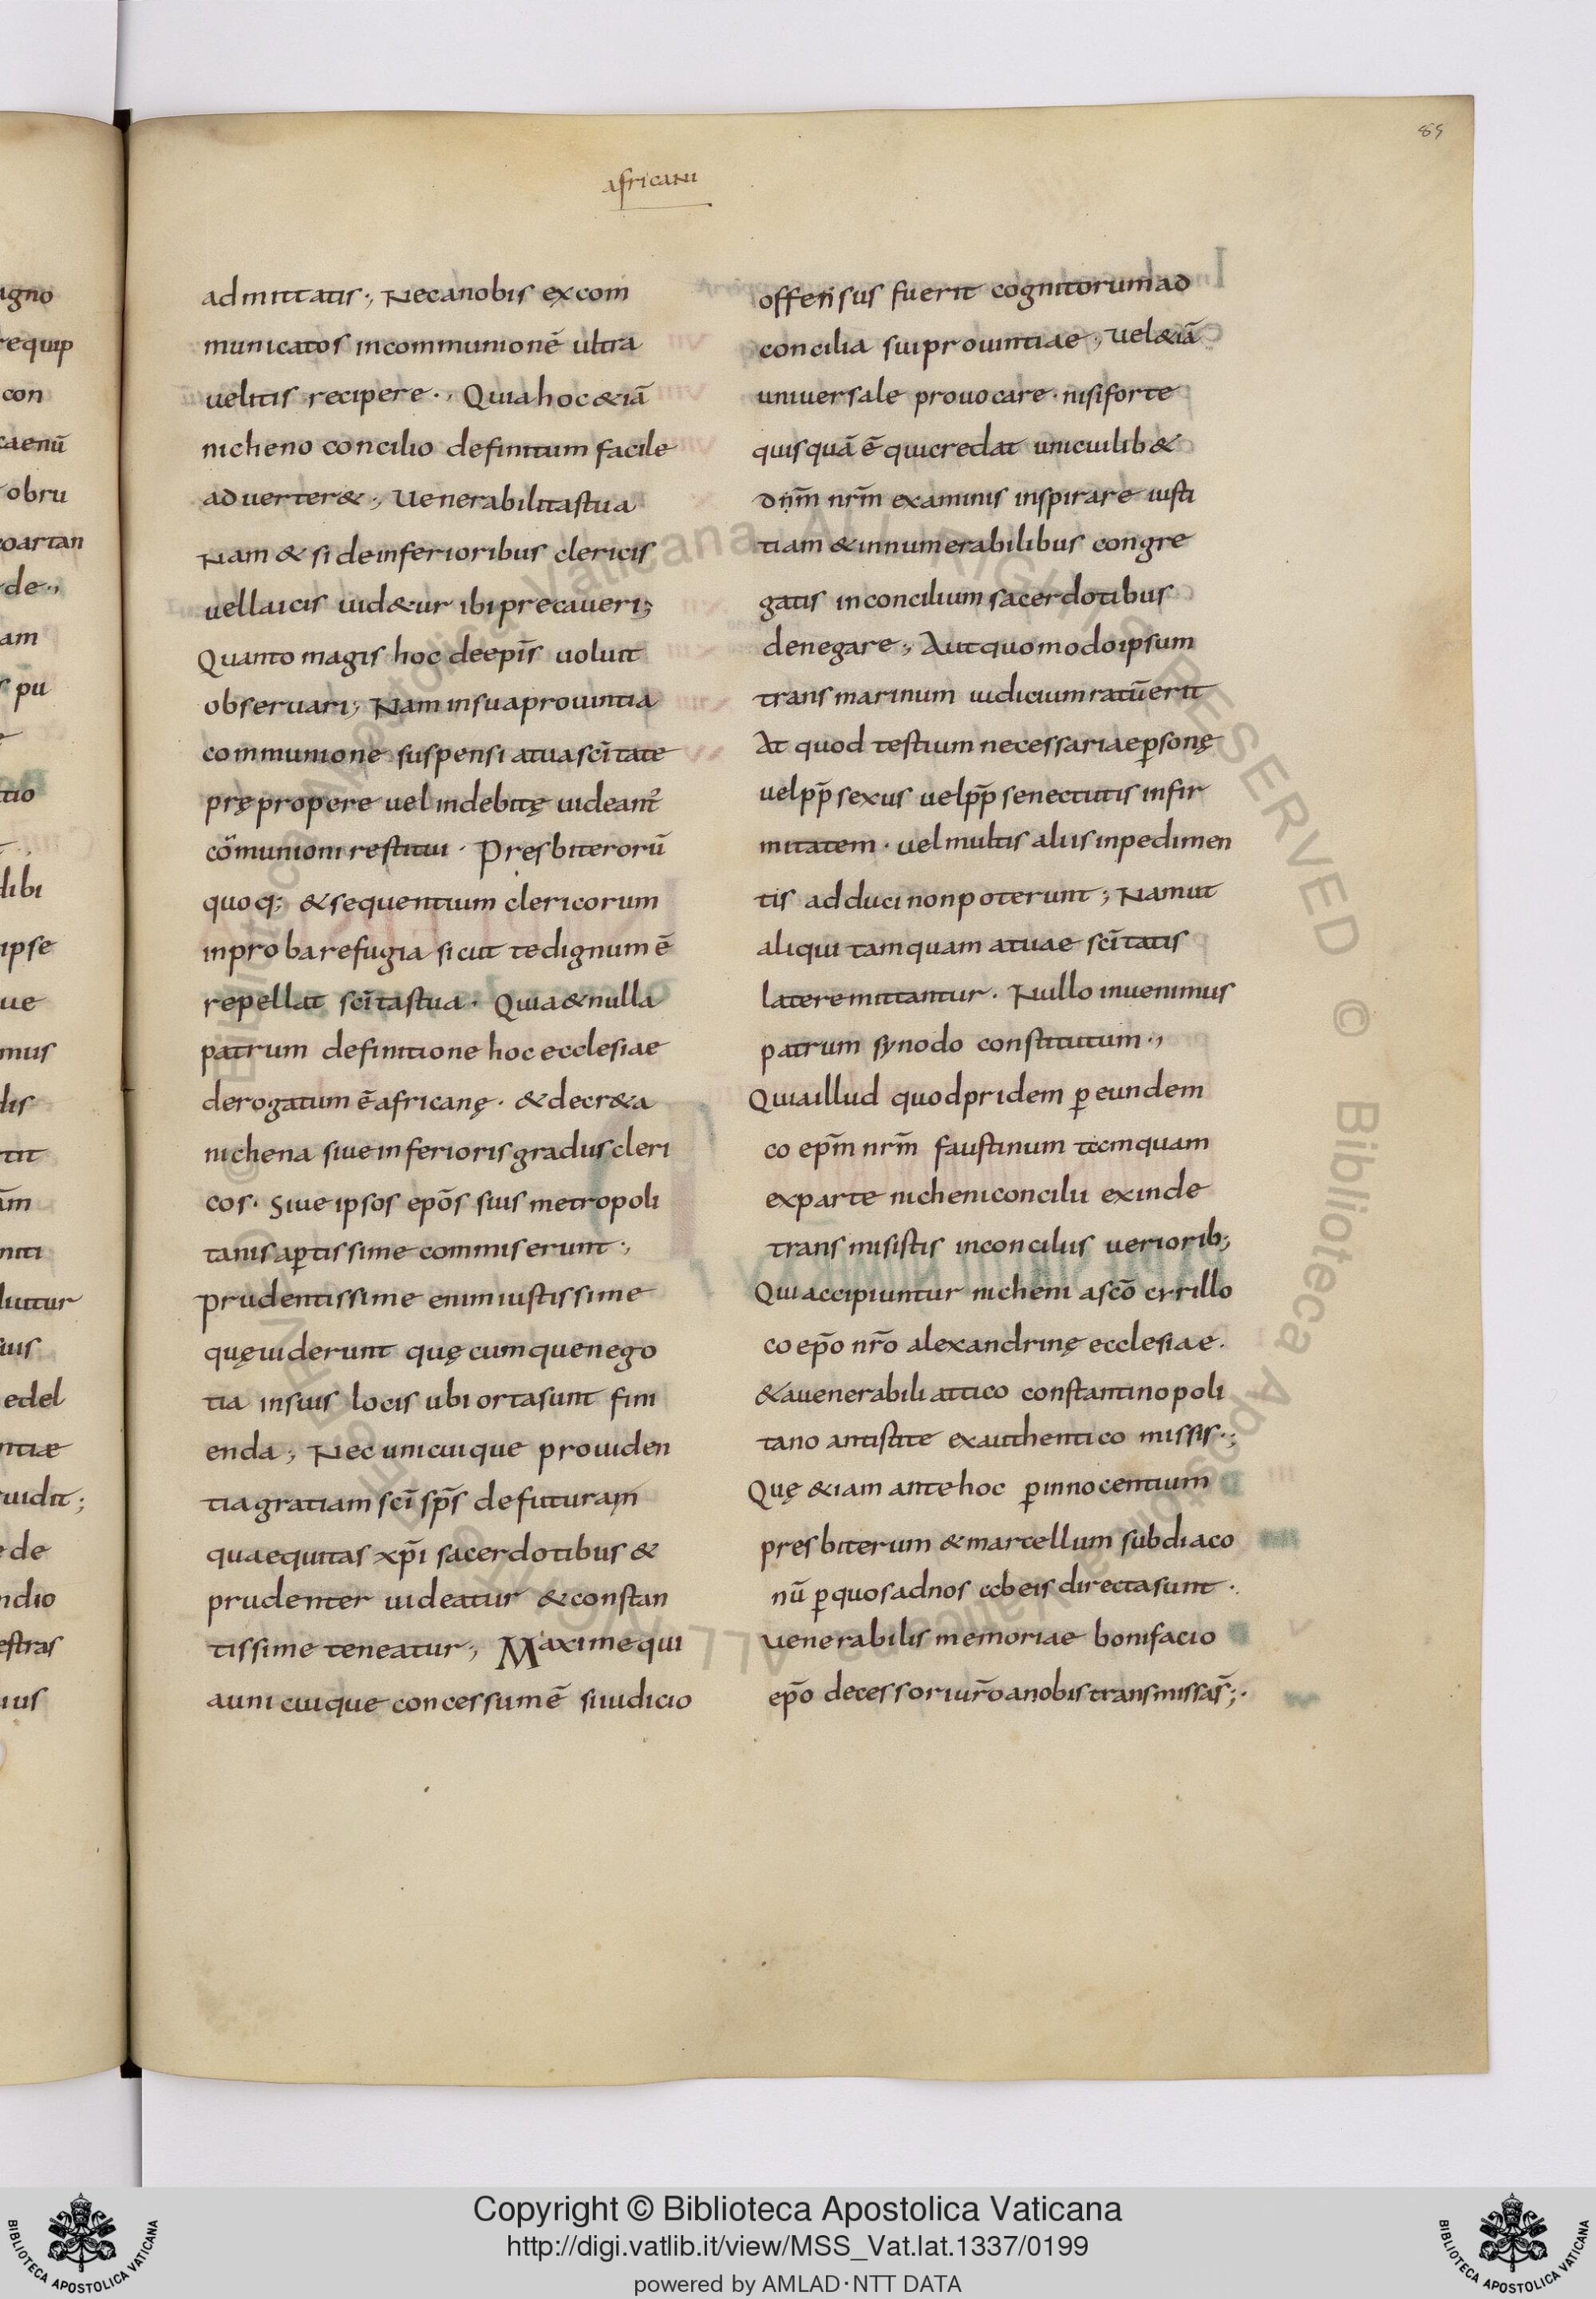 89
africani
admittatis·, Necanobis ęxcom
municatos incommunionē ultra
uelitis recipere·, Quiahoc&iā
nicheno concilio definitum facile
aduerter&·, Uenerabilitastua
Nam & si deinferioribus clericis
uellaicis uid&ur ibiprecaueri;
Quanto magis hoc deepīs uoluit
obseruari; Nam insuaprouintia
communione suspensi atuascītate
prępropere uel indebitę uideant᷑
cōmunioni restitui· Presbiterorū
quoq; &sequentium clericorum
inprobarefugia sicut tedignumē
repellat scītastua· Quia&nulla
patrum definitione hoc ecclesiae
derogatum ē africanę· &decr&a
nichena siueinferiorisgradus cleri
cos· Siue ipsos epōs suis metropoli
tanis aꝑtissime commiserunt·,
prudentissime enim iustissime
quęuiderunt quęcumquenego
tia insuis locis ubi ortasunt fini
enda; Nec unicuique prouiden
tiagratiam scī sp̄s defuturam
quaequitas xp̄i sacerdotibus &
prudenter uideatur &constan
tissime teneatur; Maximequi
aunicuique concessumē siiudicio
offensus fuerit cognitorumad
concilia suiprouintiae; uel&iā
uniuersale prouocare· nisiforte
quisquā ē quicredat unicuilib&
dn̄m nr̄m examinis inspirare iusti
tiam &innumerabilibus congre
gatis inconcilium sacerdotibus
denegare·, Autquomodoipsum
transmarinum iudiciumratūerit
At quod testium necessariaeꝑsonę
uelpp̄sexus uelpp̄senectutis infir
mitatem· uel multis aliisinpedimen
tis adducinonpoterunt; Namut
aliqui tamquam atuae scītatis
lateremittantur· Nullo inuenimus
patrum synodo constitutum·,
Quiaillud quodpridem ꝑeundem
coepm̄ nr̄m faustinum tacmquam
exparte nicheniconcilii exinde
transmisistis inconciliis ueriorib;
Quiaccipiuntur nicheni ascō crrillo
coepō nr̄o alexandrinę ecclesiae·
&auenerabili attico constantinopoli
tano antistite exauthentico missis·;
Quę &iam antehoc ꝑinnocentium
presbiterum &martellum subdiaco
nū ꝑquosadnos abeis directasunt·
uenerabilis memoriae bonifacio
epō decessoriur̄oanobistransmissas̄;·
agno
requip
con
caenū
obru
coartan
de·,
am
pu
tio
dibi
ipse
ue
mus
dis
tit
niti
luitur
uis
edel
ntiæ
uidit;
de
ndio
estras
ius
Copyright © Biblioteca Apostolica Vaticana
http://digi.vatlib.it/view/MSS_Vat.lat.1337/0199
powered by AMLAD·NTT DATA
BIBLIOTECA APOSTOLICA VATICANA
BIBLIOTECA APOSTOLICA VATICANA